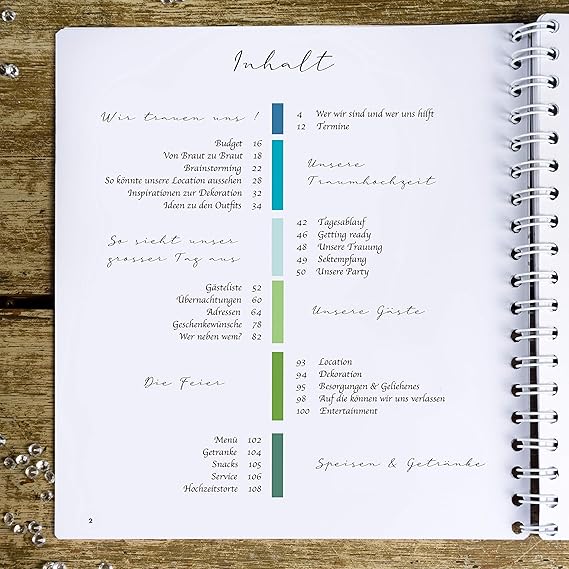 Inhalt
Wir trauen uns !
4 Wer wir sind und wer uns hilft
12 Termine
Budget 16
Von Braut zu Braut 18
Brainstorming 22
So könnte unsere Location aussehen 28
Inspirationen zur Dekoration 32
Ideen zu den Outfits 34
Unsere
Traumhochzeit
So sieht unser
grosser Tag aus
42 Tagesablauf
46 Getting ready
48 Unsere Trauung
49 Sektempfang
50 Unsere Party
Gästeliste 52
Übernachtungen 60
Adressen 64
Geschenkewünsche 78
Wer neben wem? 82
Unsere Gäste
Die Feier
93 Location
94 Dekoration
95 Besorgungen & Geliehenes
98 Auf die können wir uns verlassen
100 Entertainment
Menü 102
Getränke 104
Snacks 105
Service 106
Hochzeitstorte 108
Speisen & Getränke
2